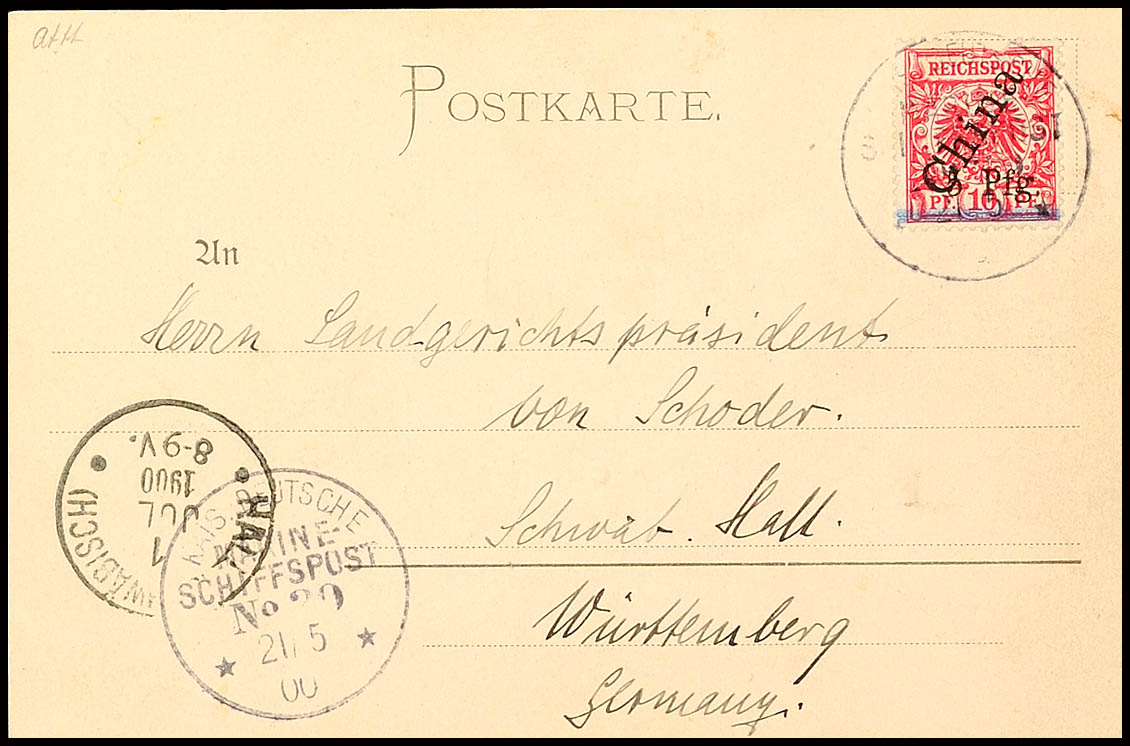 POSTKARTE.
REICHSPOST
China
Pfg.
PF. 10 PF.
An
Herrn Landgerichtspräsident
von Schoder.
Schwäb. Hall.
8-9 V.
1900
JUL
1
HALL
(SCHWÄBISCH)
KAIS. DEUTSCHE
MARINE-
SCHIFFSPOST
No 29
21/5
00
Württemberg
Germany.